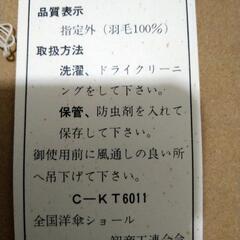 品質表示
指定外(羽毛100%)
取扱方法
洗濯、ドライクリーニ
ングをして下さい。
保管、防虫剤を入れて
保存して下さい。
御使用前に風通しの良い所
へ吊下げて下さい。
C－KT6011
全国洋傘ショール